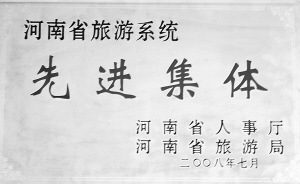 河南省旅游系统
先进集体
河南省人事厅
河南省旅游局
二〇〇八年七月